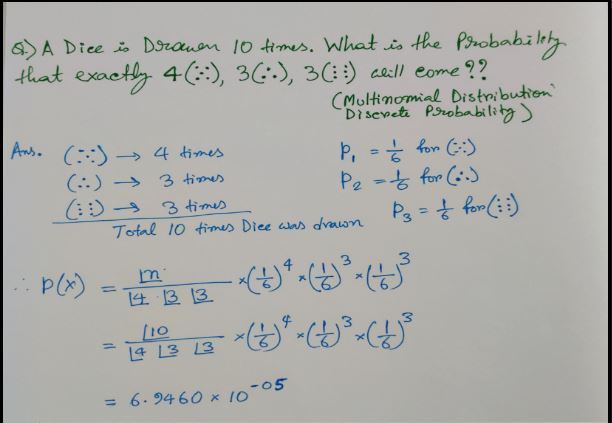 Q.) A Dice is Drawen 10 times. What is the Probability
that exactly 4(⁙), 3(∴), 3(⋮⋮) will come ??
(Multinomial Distribution
Discrete Probability)
Ans. (⁙) → 4 times
(∴) → 3 times
(⋮⋮) → 3 times
Total 10 times Dice was drawn
P₁ = 1/6 for (⁙)
P₂ = 1/6 for (∴)
P₃ = 1/6 for (⋮⋮)
∴ P(x) = |n / |4 |3 |3 × (1/6)⁴ × (1/6)³ × (1/6)³
= |10 / |4 |3 |3 × (1/6)⁴ × (1/6)³ × (1/6)³
= 6.9460 × 10⁻⁰⁵